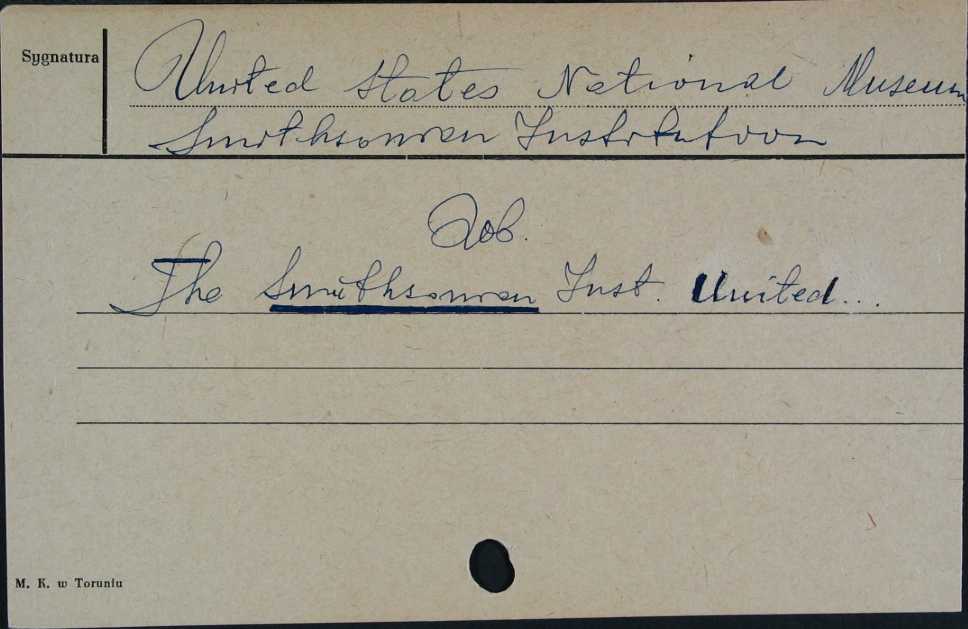 Sygnatura
United States National Museum
Smithsonian Institution
Zob.
The Smithsonian Inst. United...
M. K. w Toruniu